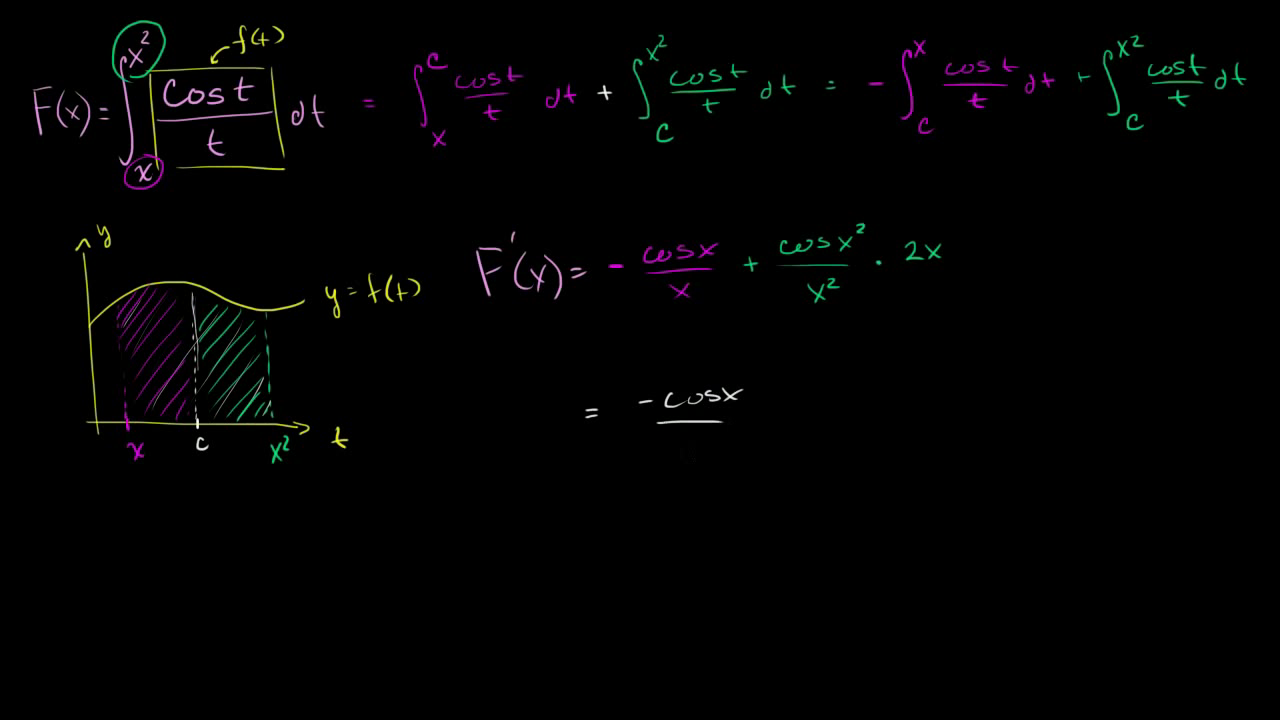 f(t)
F(x) = ∫_x^{x²} cos t / t dt = ∫_x^c cos t / t dt + ∫_c^{x²} cos t / t dt = - ∫_c^x cos t / t dt + ∫_c^{x²} cos t / t dt
y
F'(x) = - cos x / x + cos x² / x² · 2x
y = f(t)
= -cos x
x c x² t